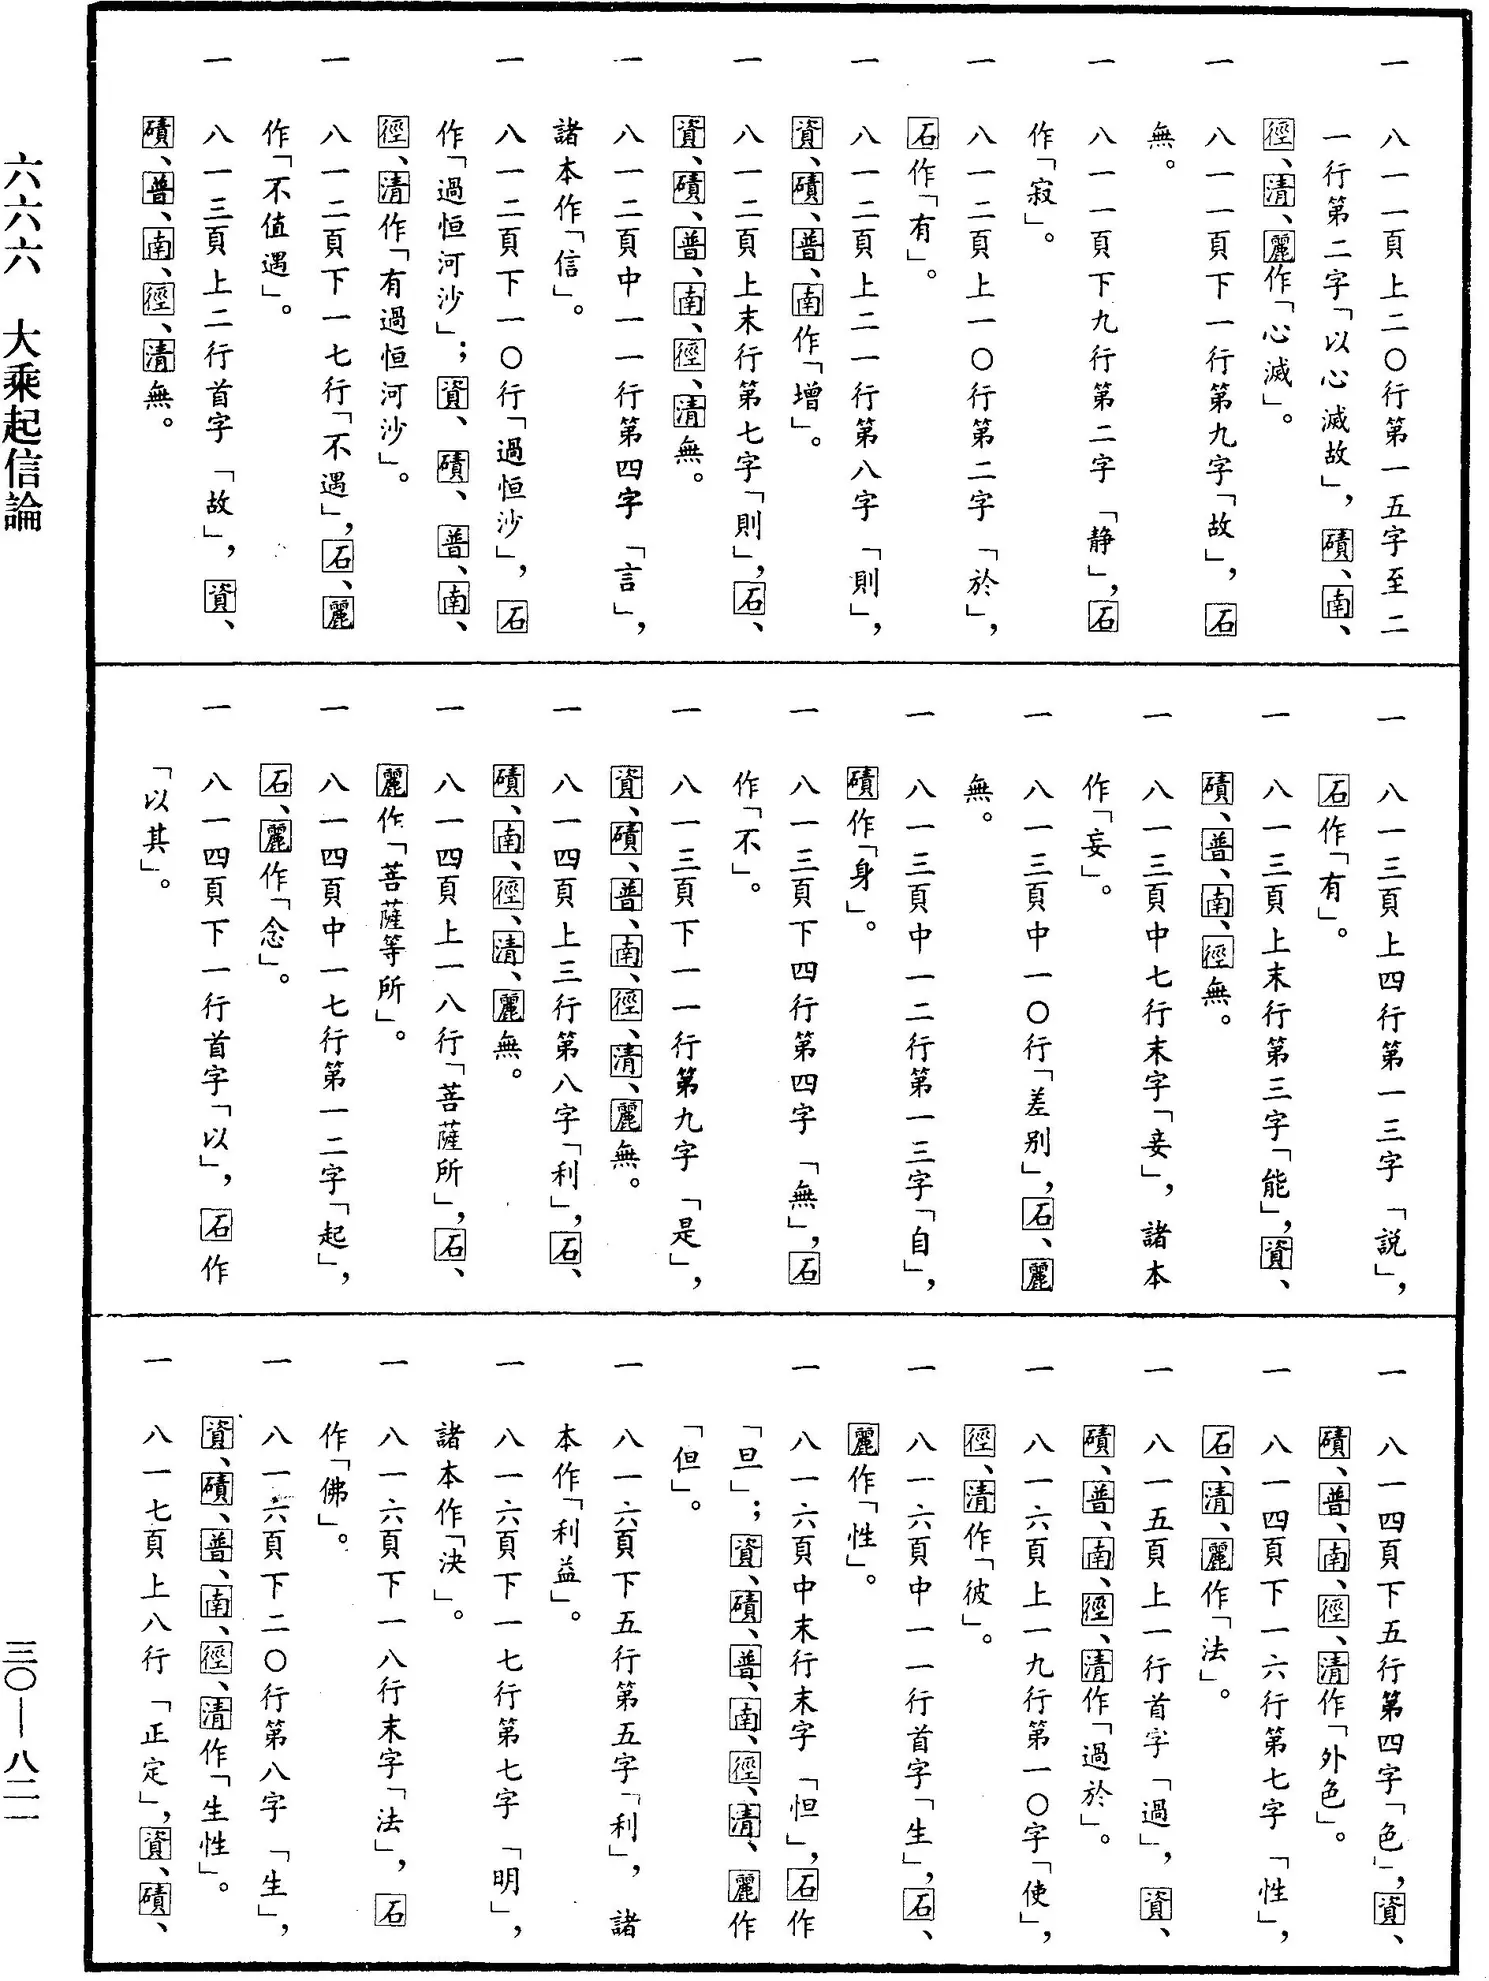 一　八一一頁上二〇行第一五字至二
一行第二字「以心滅故」，磧、南、
徑、清、麗作「心滅」。
一　八一一頁下一行第九字「故」，石
無。
一　八一一頁下九行第二字「静」，石
作「寂」。
一　八一二頁上一〇行第二字「於」，
石作「有」。
一　八一二頁上二一行第八字「則」，
資、磧、普、南作「增」。
一　八一二頁上末行第七字「則」，石、
資、磧、普、南、徑、清無。
一　八一二頁中一一行第四字「言」，
諸本作「信」。
一　八一二頁下一〇行「過恒沙」，石
作「過恒河沙」；資、磧、普、南、
徑、清作「有過恒河沙」。
一　八一二頁下一七行「不遇」，石、麗
作「不值遇」。
一　八一三頁上二行首字「故」，資、
磧、普、南、徑、清無。
一　八一三頁上四行第一三字「説」，
石作「有」。
一　八一三頁上末行第三字「能」，資、
磧、普、南、徑無。
一　八一三頁中七行末字「妾」，諸本
作「妄」。
一　八一三頁中一〇行「差别」，石、麗
無。
一　八一三頁中一二行第一三字「自」，
磧作「身」。
一　八一三頁下四行第四字「無」，石
作「不」。
一　八一三頁下一一行第九字「是」，
資、磧、普、南、徑、清、麗無。
一　八一四頁上三行第八字「利」，石、
磧、南、徑、清、麗無。
一　八一四頁上一八行「菩薩所」，石、
麗作「菩薩等所」。
一　八一四頁中一七行第一二字「起」，
石、麗作「念」。
一　八一四頁下一行首字「以」，石作
「以其」。
一　八一四頁下五行第四字「色」，資、
磧、普、南、徑、清作「外色」。
一　八一四頁下一六行第七字「性」，
石、清、麗作「法」。
一　八一五頁上一行首字「過」，資、
磧、普、南、徑、清作「過於」。
一　八一六頁上一九行第一〇字「使」，
徑、清作「彼」。
一　八一六頁中一一行首字「生」，石、
麗作「性」。
一　八一六頁中末行末字「怛」，石作
「旦」；資、磧、普、南、徑、清、麗作
「但」。
一　八一六頁下五行第五字「利」，諸
本作「利益」。
一　八一六頁下一七行第七字「明」，
諸本作「決」。
一　八一六頁下一八行末字「法」，石
作「佛」。
一　八一六頁下二〇行第八字「生」，
資、磧、普、南、徑、清作「生性」。
一　八一七頁上八行「正定」，資、磧、
六六六　大乘起信論
三〇——八二一